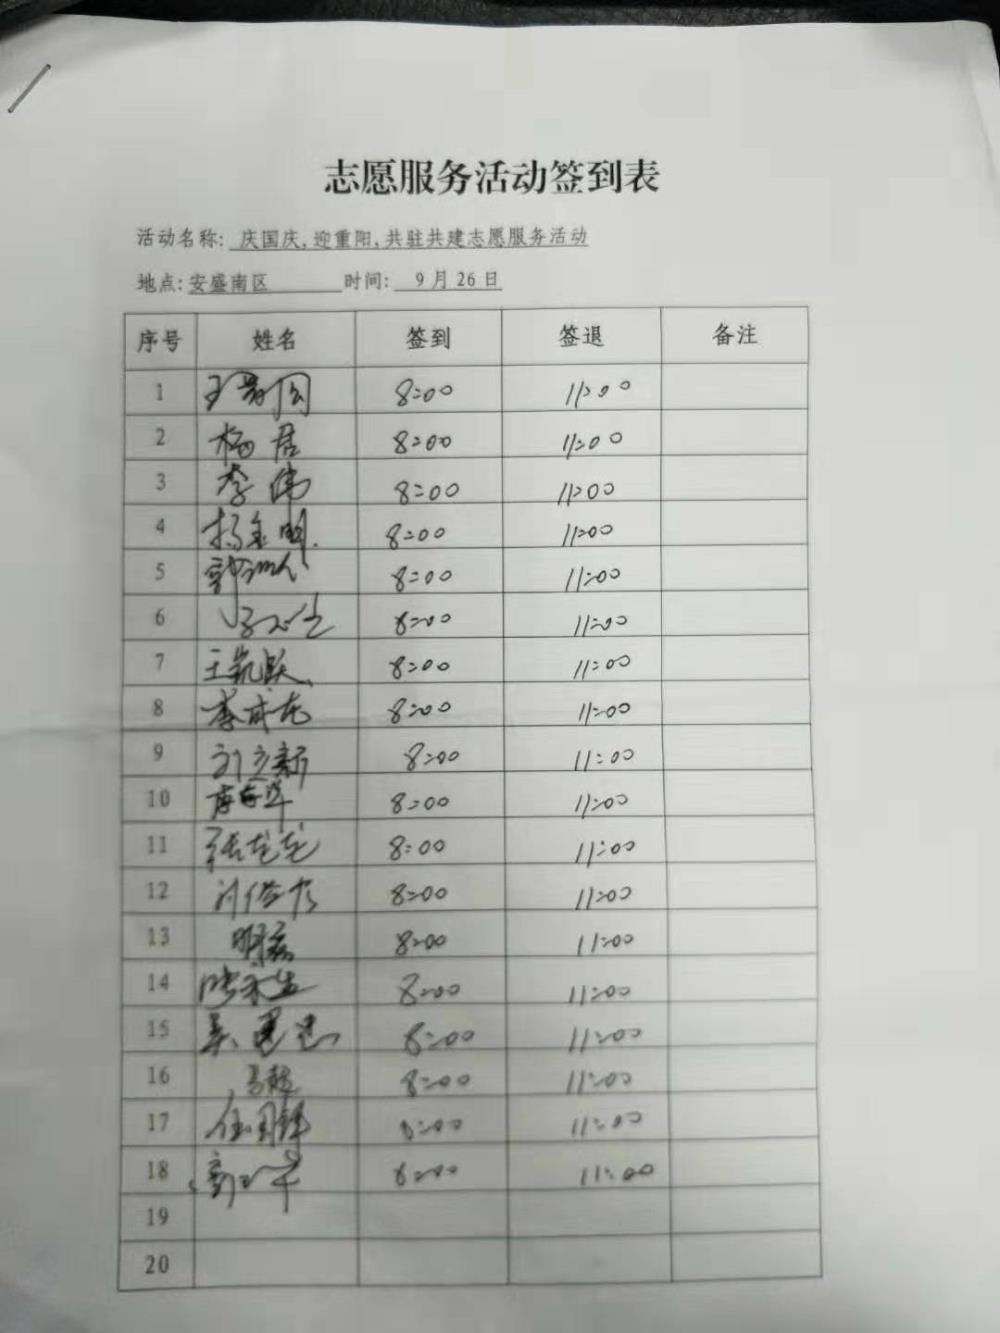 志愿服务活动签到表
活动名称: 庆国庆,迎重阳,共驻共建志愿服务活动
地点:安盛南区 时间: 9月26日
序号 姓名 签到 签退 备注
1 8:00 11:00
2 杨居 8:00 11:00
3 李伟 8:00 11:00
4 杨金明 8:00 11:00
5 8:00 11:00
6 8:00 11:00
7 王凯跃 8:00 11:00
8 李成龙 8:00 11:00
9 刘立新 8:00 11:00
10 8:00 11:00
11 张龙龙 8:00 11:00
12 8:00 11:00
13 8:00 11:00
14 张永生 8:00 11:00
15 8:00 11:00
16 马超 8:00 11:00
17 任国锋 8:00 11:00
18 8:00 11:00
19
20